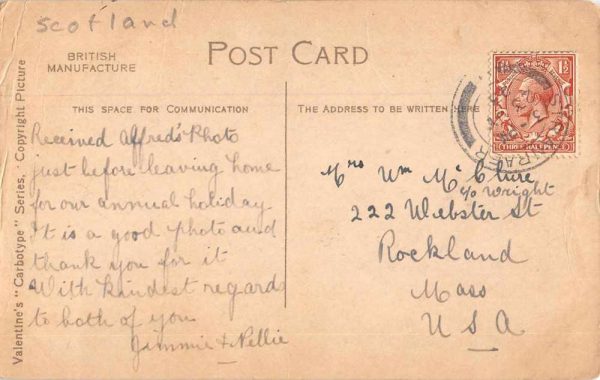 Scotland
BRITISH
MANUFACTURE
POST CARD
THIS SPACE FOR COMMUNICATION
THE ADDRESS TO BE WRITTEN HERE
Valentine's "Carbotype" Series, Copyright Picture
Received Alfred's Photo
just before leaving home
for our annual holiday
It is a good photo and
thank you for it
With kindest regards
to both of you
Jimmie & Nellie
Mrs Wm McClure
c/o Wright
222 Webster St
Rockland
Mass
U S A
1½
THREE HALFPENCE